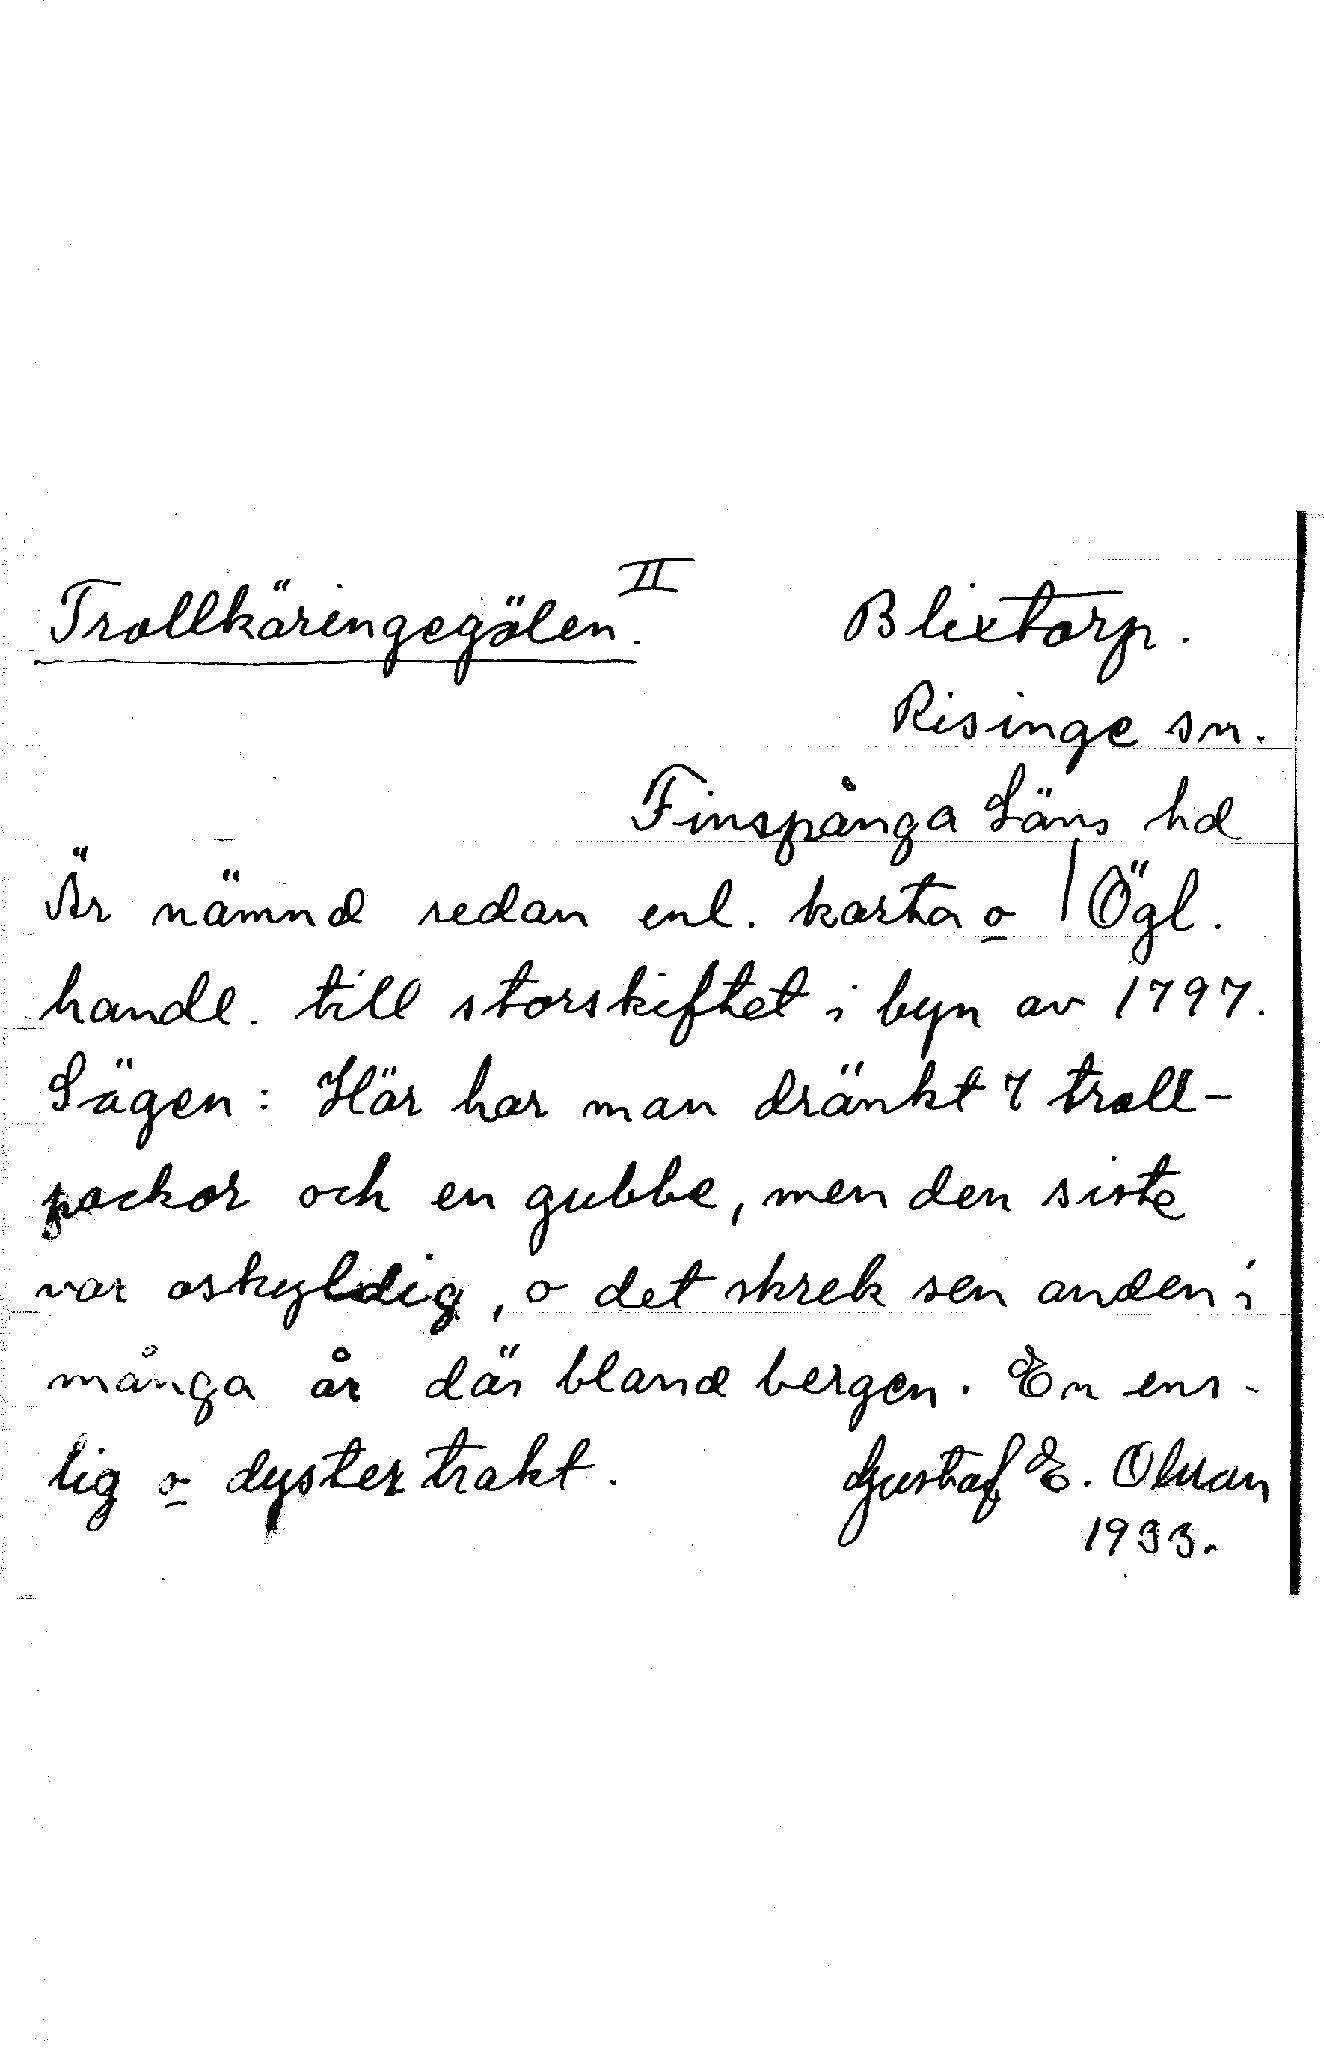 Trollkäringegölen. II Blixtorp.
Risinge sn.
Finspånga Läns hd
Är nämnd redan enl. karta o | Ögl.
handl. till storskiftet i byn av 1797.
Sägen: Här har man dränkt 7 troll-
packor och en gubbe, men den siste
var oskyldig, o det skrek sen anden i
många år där bland bergen. En ens-
lig o dyster trakt. Gustaf E. Olsson
1933.